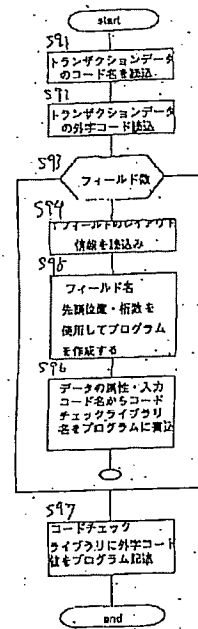 start
S91
トランザクションデータ
のコード名を読込
S92
トランザクションデータ
の外字コード読込
S93
フィールド数
S94
1フィールドのレイアウト
情報を読込み
S95
フィールド名
先頭位置・桁数を
使用してプログラム
を作成する
S96
データの属性・入力
コード名からコード
チェックライブラリ
名をプログラムに書込
S97
コードチェック
ライブラリに外字コード
値をプログラム記述
end